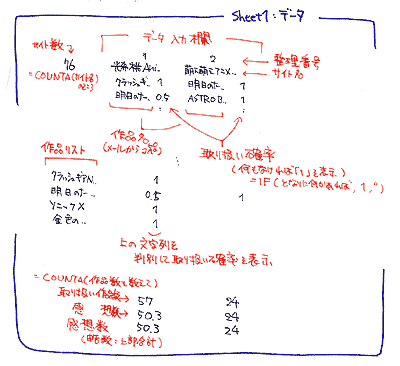 Sheet1：データ
データ入力欄
サイト数
76
=COUNTA(サイト名)
1 2 整理番号
サイト名
クラッシュギ.. 1 明日のナ.. 1
明日のナ.. 0.5 ASTRO B.. 1
: :
作品名
(メールからコピペ)
取り扱い確率
(何もなければ「1」を表示)
=IF(となりに何かあれば,1,")
作品リスト
クラッシュギアN.. 1
明日のナー.. 0.5 1
ソニックX 1
金色の.... 1
上の文字列を
判別して取り扱い確率を表示
=COUNTA(作品数を数えて)
取り扱い作品数→ 57 24
感想数→ 50.3 24
感想数 50.3 24
(上部合計)